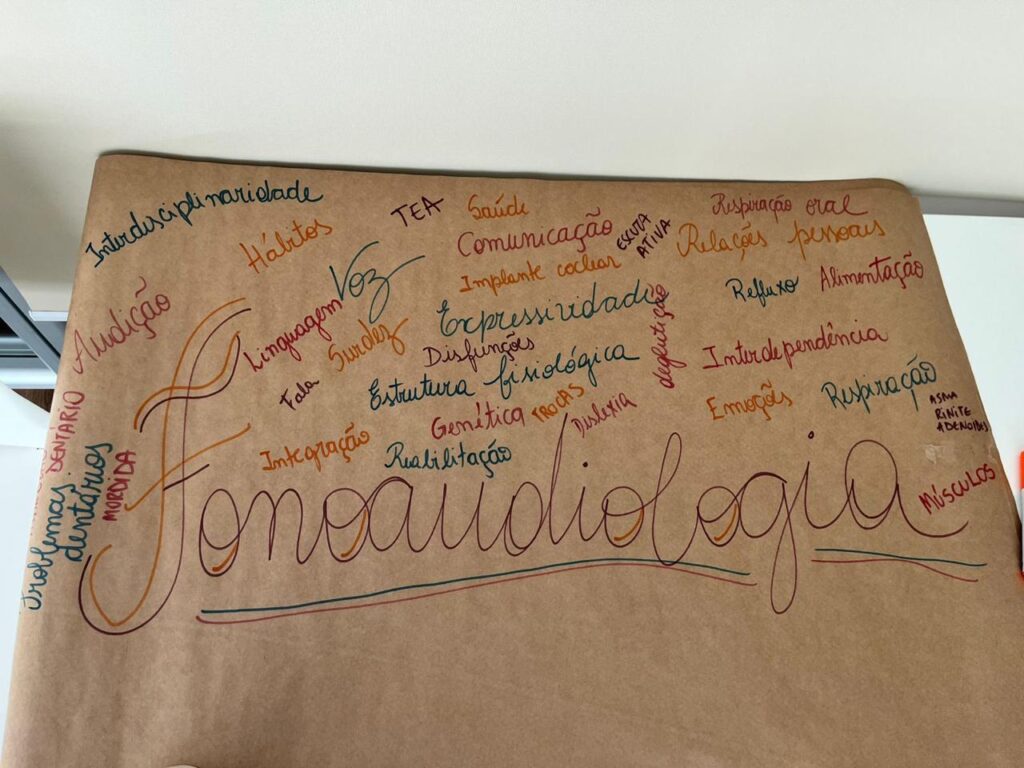 Interdisciplinaridade
Hábitos
TEA
Saúde
Comunicação
ESCUTA
ATIVA
Respiração oral
Relações pessoais
Voz
Implante coclear
Expressividade
Refluxo
Alimentação
Audição
Linguagem
Surdez
Disfunções
deglutição
Interdependência
Fala
Estrutura fisiológica
Genética
TROCAS
Dislexia
Emoções
Respiração
ASMA
RINITE
ADENOIDES
Integração
Reabilitação
DENTÁRIO
Problemas
dentários
MORDIDA
MÚSCULOS
Fonoaudiologia